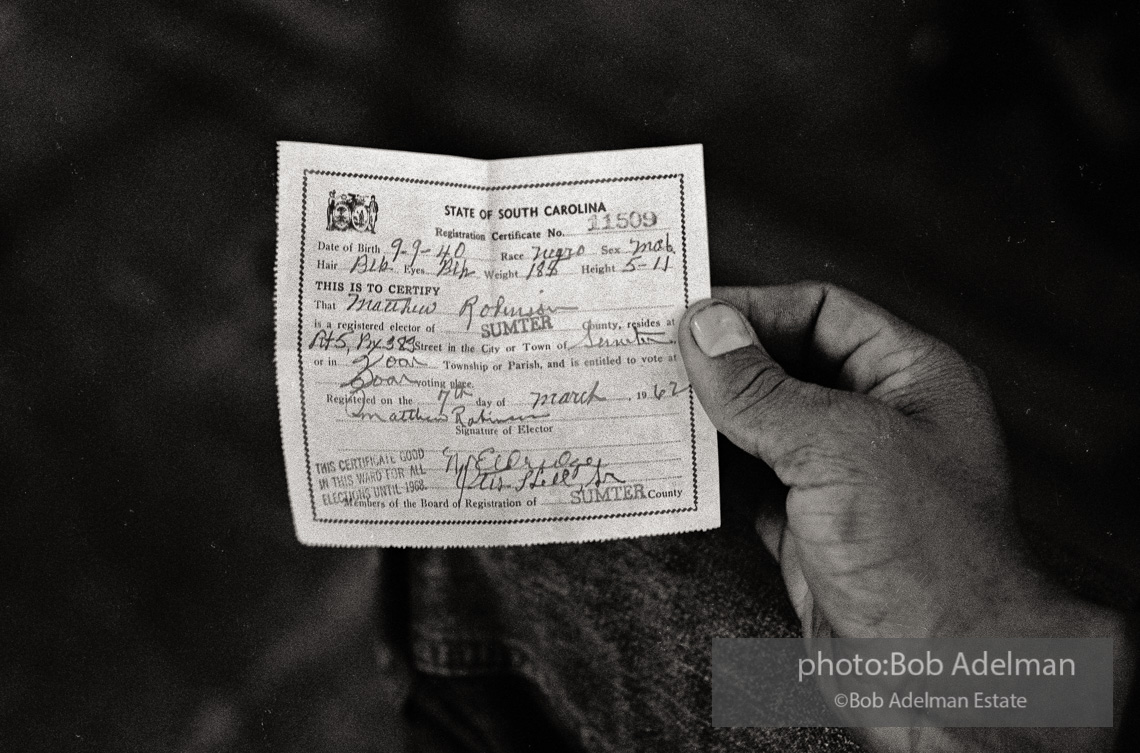 STATE OF SOUTH CAROLINA
Registration Certificate No. 11509
Date of Birth 9-9-40 Race Negro Sex Male
Hair Blk Eyes Blk Weight 188 Height 5-11
THIS IS TO CERTIFY
That Matthew Robinson
is a registered elector of SUMTER County, resides at
Rt 5, Bx 383 Street in the City or Town of Sumter
or in Zoar Township or Parish, and is entitled to vote at
Zoar voting place.
Registered on the 7th day of march, 1962
Matthew Robinson
Signature of Elector
THIS CERTIFICATE GOOD
IN THIS WARD FOR ALL
ELECTIONS UNTIL 1968.
Members of the Board of Registration of SUMTER County
photo:Bob Adelman
©Bob Adelman Estate